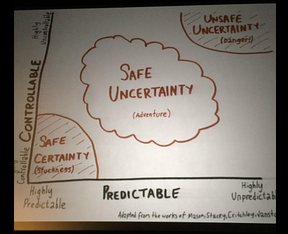 UNSAFE
UNCERTAINTY
(Danger!)
SAFE
UNCERTAINTY
(Adventure)
Highly
CONTROLLABLE
Controllable
SAFE
CERTAINTY
(Stuckness)
Highly
Predictable
PREDICTABLE
Highly
Unpredictable
Adapted from the works of Mason, Stacey, Critchley